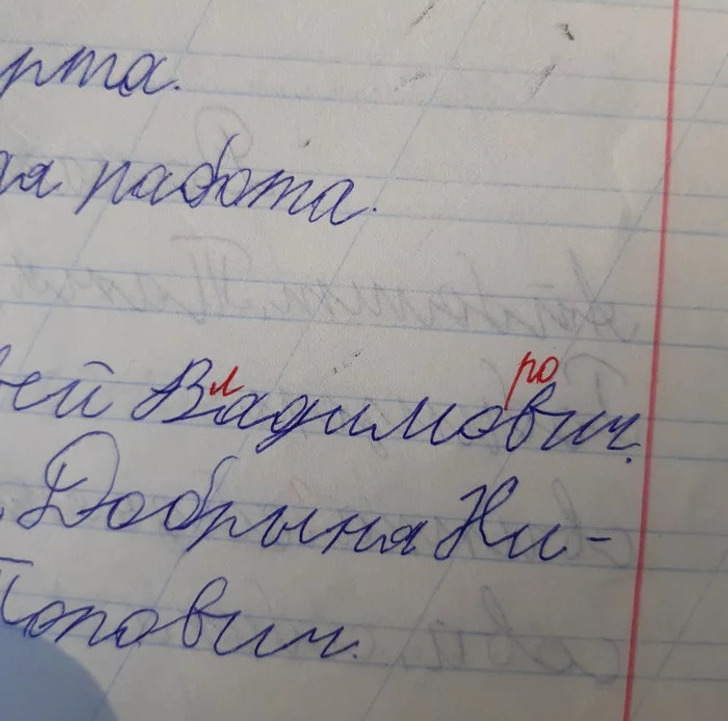 рта.
ая работа.
л ро
вей Вадимович.
Добрыня Ни-
Попович.